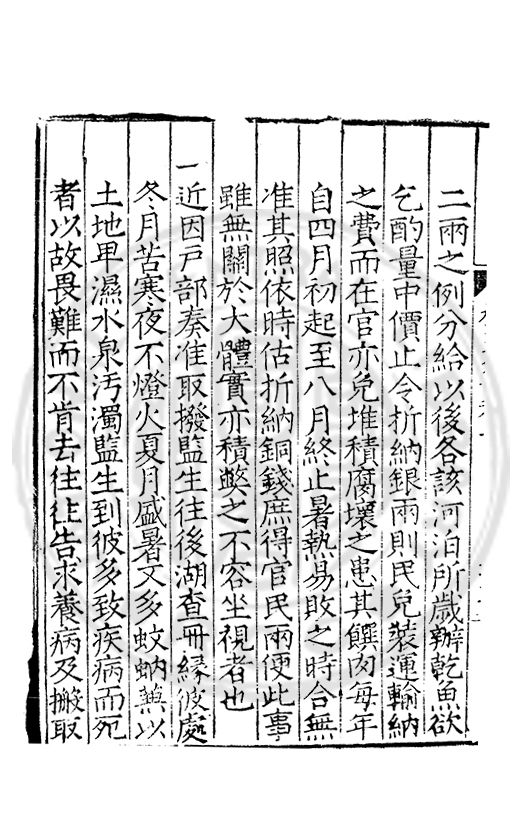 二兩之例分給以後各該河泊所歲辦乾魚欲
乞酌量中價止令折納銀兩則民免裝運輸納
之費而在官亦免堆積腐壞之患其饌肉每年
自四月初起至八月終止暑熱易敗之時合無
准其照依時估折納銅錢庶得官民兩便此事
雖無關於大體實亦積弊之不容坐視者也
一近因戶部奏准取撥監生往後湖查冊緣彼處
冬月苦寒夜不燈火夏月盛暑又多蚊蚋兼以
土地卑濕水泉汚濁監生到彼多致疾病而死
者以故畏難而不肯去往往告求養病及搬取